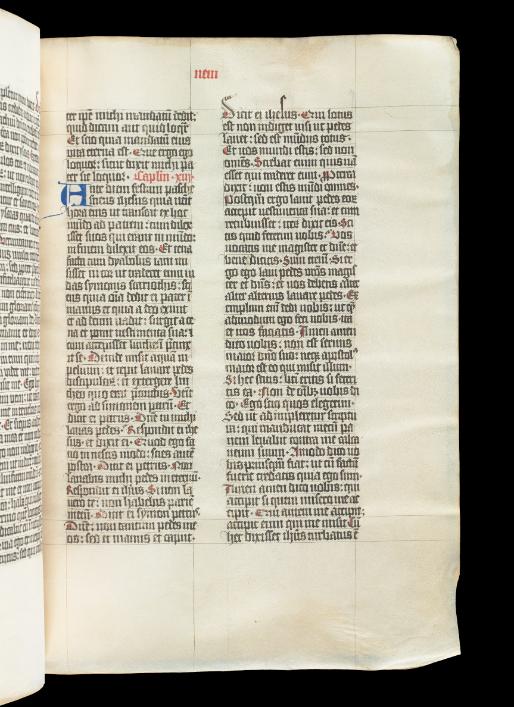 nem
ter ip̄e michi mandatū dedit:
quid dicam aut quid loqr̄
Et scio quia mandatū eius
uita eterna est. Que ergo ego
loquor: sicut dixit michi pa
ter sic loquor. Caplm xiij
Ante diem festum pasche
sciens ihesus quia uenit
hora eius ut transeat ex hoc
mūdo ad patrem: cum dilex
isset suos qui erant in mūdo:
in finem dilexit eos. Et cena
facta cum dyabolus iam mi
sisset in cor ut traderet eum iu
das symonis scariothis: sci
ens quia oīa dedit ei pater ī
manus et quia a deo exiuit
et ad deum uadit: surgit a ce
na et ponit uestimenta sua: t
cum accepisset lintheū preciux
it se. Deinde misit aquam in
peluim: et cepit lauare pedes
discipulorum: et extergere lin
theo quo erat precinctus. Venit
ergo ad simonem petrū. Et
dicit ei petrus. Dn̄e tu michi
lauas pedes. Respondit ei ihe
sus et dixit ei. Quod ego fa
cio tu nescis modo: scies autē
postea. Dicit ei petrus. Non
lauabis michi pedes in eternū.
Respondit ei ihūs. Si non la
uero te: non habebis partē
mecū. Dicit ei symon petrus.
Dn̄e: non tantum pedes me
os: sed et manus et caput.
Dicit ei ihesus. Qui lotus
est non indiget nisi ut pedes
lauet: sed est mūdus totus.
Et uos mundi estis: sed non
omnes. Sciebat enim quis nā
esset qui traderet eum. Propterea
dixit: non estis mūdi omnes.
Postquā ergo lauit pedes eorum
accepit uestimenta sua: et cum
recubuisset: iterum dixit eis. Sci
tis quid fecerim uobis: Vos
uocatis me magister et dn̄e: et
bene dicitis. Sum etenī. Si er
go ego laui pedes uros magist
ter et dn̄s: et uos debetis alter
alter alterius lauare pedes. Ex
emplum enī dedi uobis: ut quē
admodum ego feci uobis: ita
et uos faciatis. Amen amen
dico uobis: non est seruus
maior dn̄o suo: neqȝ apostolus
maior est eo qui misit illum.
Si hec scitis: beati eritis si feceri
tis ea. Non de omībȝ uobis di
co. Ego scio quos elegerim.
Sed ut adimpleatur scriptu
ra: qui manducat mecū pa
nem leuabit contra me calca
neum suum. Amodo dico uo
bis priusquā fiat: ut cū factū
fuerit credatis quia ego sum.
Amen amen dico uobis: qui
accipit si quem misero me ac
cipit. Qui autem me accipit:
accipit eum qui me misit. Cū
hec dixisset ihūs turbatus ē